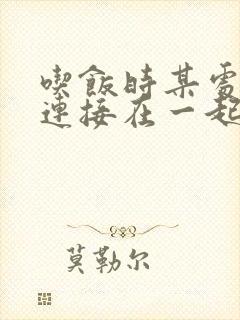 喫飯時某處
連接在一起
莫勒尔